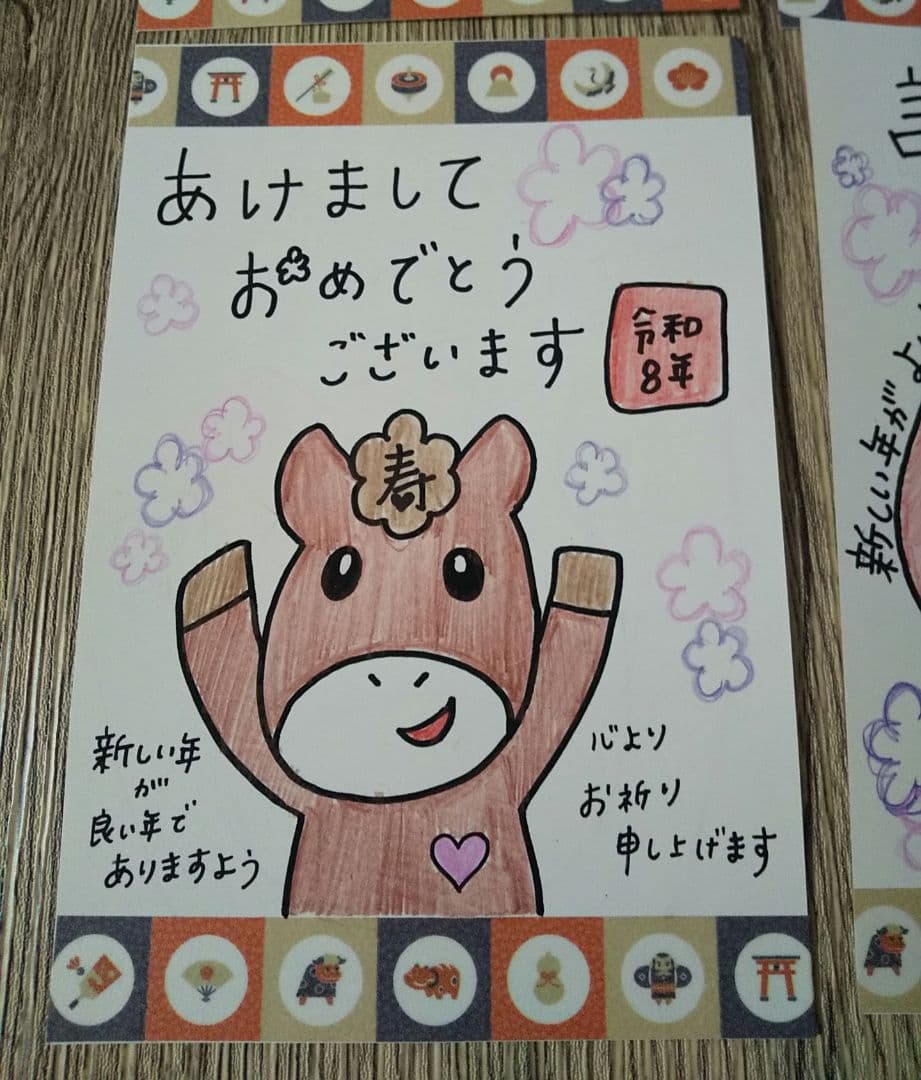 あけまして
おめでとう
ございます
令和
8年
寿
新しい年
が
良い年で
ありますよう
心より
お祈り
申し上げます
新年が